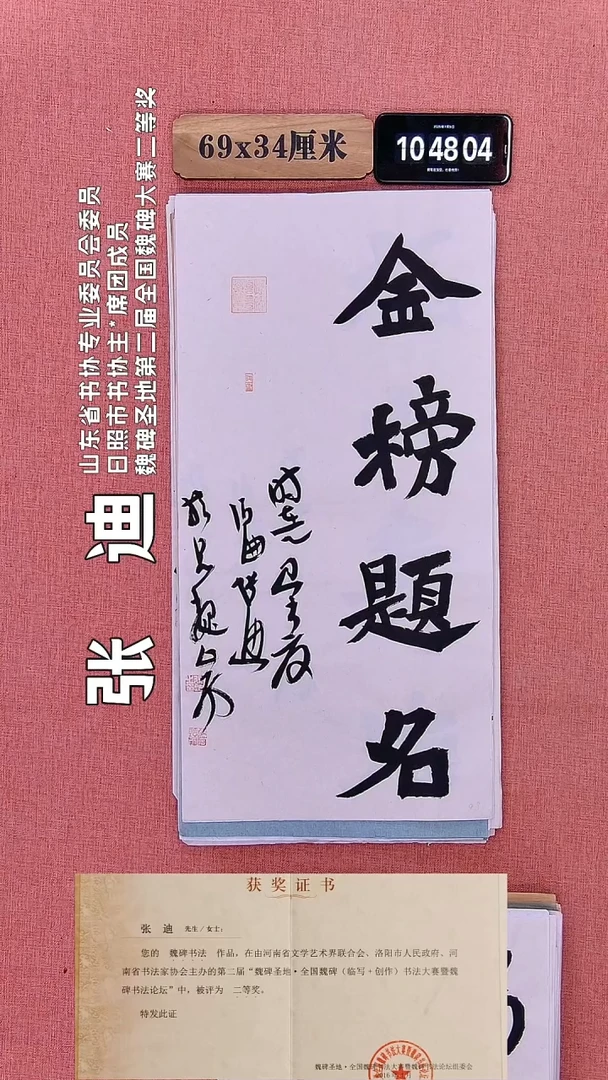 69x34厘米
10 48 04
山东省书协专业委员会委员
日照市书协主*席团成员
魏碑圣地第二届全国魏碑大赛二等奖
张 迪
金榜题名
获奖证书
张 迪 先生/女士:
您的 魏碑书法 作品，在由河南省文学艺术界联合会、洛阳市人民政府、河
南省书法家协会主办的第二届“魏碑圣地·全国魏碑（临写+创作）书法大赛暨魏
碑书法论坛”中，被评为 二等奖。
特发此证